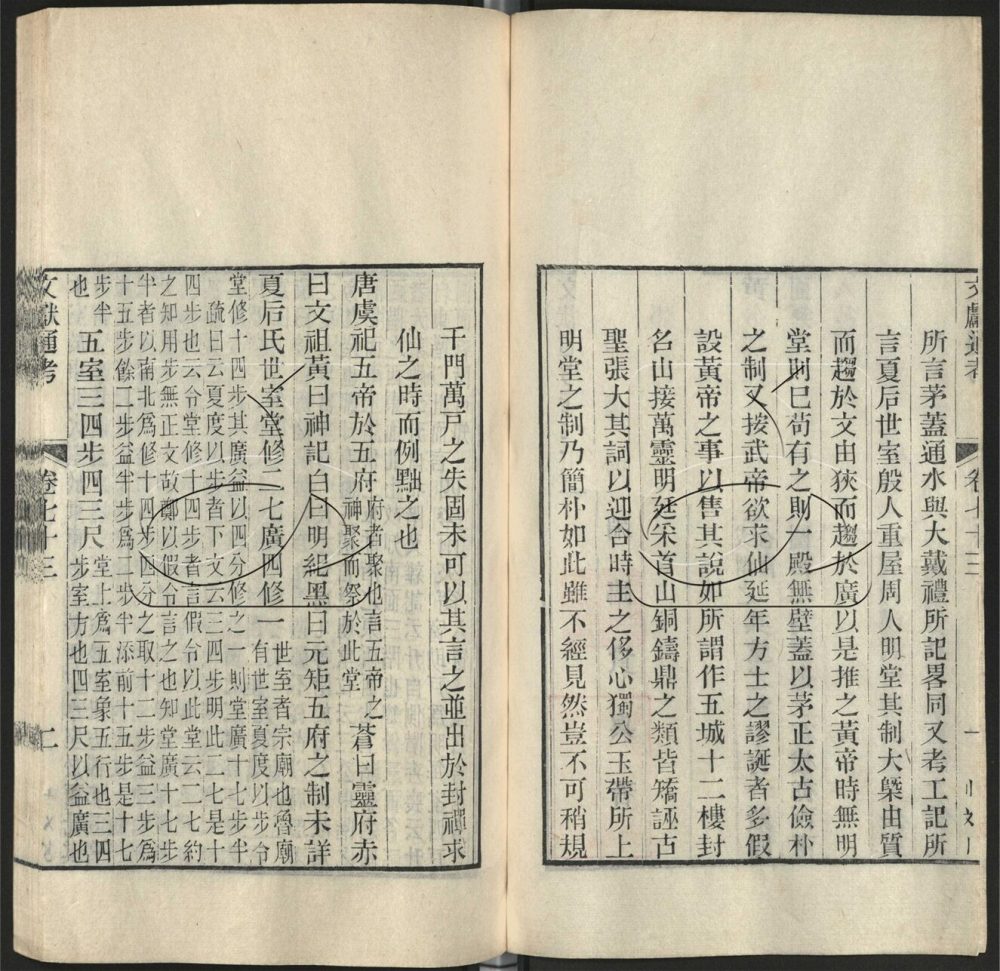 文獻通考 卷七十三 一
所言茅蓋通水與大戴禮所記畧同又考工記所
言夏后世室殷人重屋周人明堂其制大槩由質
而趨於文由狹而趨於廣以是推之黃帝時無明
堂則已苟有之則一殿無壁蓋以茅正太古儉朴
之制又接武帝欲求仙延年方士之謬誕者多假
設黃帝之事以售其說如所謂作五城十二樓封
名山接萬靈明廷采首山銅鑄鼎之類皆矯誣古
聖張大其詞以迎合時主之侈心獨公玉帶所上
明堂之制乃簡朴如此雖不經見然豈不可稍規
千門萬戸之失固未可以其言之並出於封禪求
仙之時而例黜之也
唐虞祀五帝於五府府者聚也言五帝之神聚而祭於此堂蒼曰靈府赤
曰文祖黃曰神記白曰明紀黑曰元矩五府之制未詳
夏后氏世室堂修二七廣四修一世室者宗廟也魯廟有世室夏度以步令
堂修十四步其廣益以四分修之一則堂廣十七步半
疏曰云夏度以步者下文云三四步明此二七是十
四步也云令堂修十四步者言假令以此堂云二七約
之知用步無正文故鄭以假令言之也知堂廣十七步
半者以南北爲修十四步四分之取十二步益三步爲
十五步餘二步益半步爲二步半添前十五步是十七
步半也五室三四步四三尺堂上爲五室象五行也三四步室方也四三尺以益廣也
文獻通考 卷七十三 二